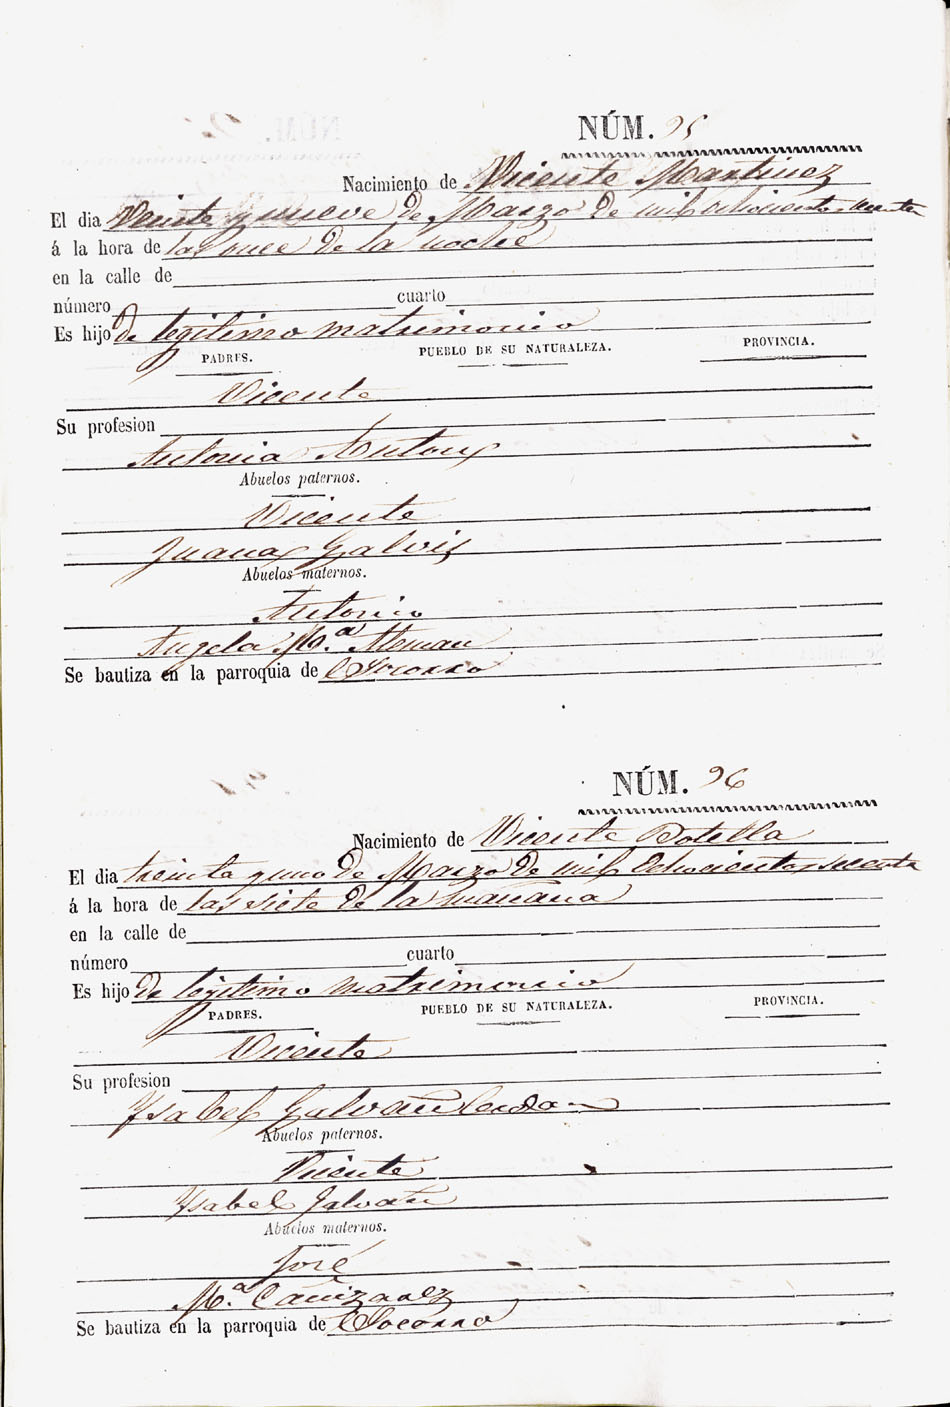 NÚM. 95
Nacimiento de Vicente Martinez
El dia Veinte y nueve de Marzo de mil ochocientos secenta
á la hora de las once de la noche
en la calle de
número cuarto
Es hijo de legitimo matrimonio
PADRES. PUEBLO DE SU NATURALEZA. PROVINCIA.
Vicente
Su profesion
Antonia Anton
Abuelos paternos.
Vicente
Juana Galvis
Abuelos maternos.
Antonio
Angela M.ª Aleman
Se bautiza en la parroquia de el Socorro
NÚM. 96
Nacimiento de Vicente Botella
El dia treinta y uno de Marzo de mil Ochocientos secenta
á la hora de las siete de la mañana
en la calle de
número cuarto
Es hijo de legitimo matrimonio
PADRES. PUEBLO DE SU NATURALEZA. PROVINCIA.
Vicente
Su profesion
Ysabel Galvañ
Abuelos paternos.
Vicente
Ysabel Galvañ
Abuelos maternos.
José
M.ª Cañizarez
Se bautiza en la parroquia de el Socorro